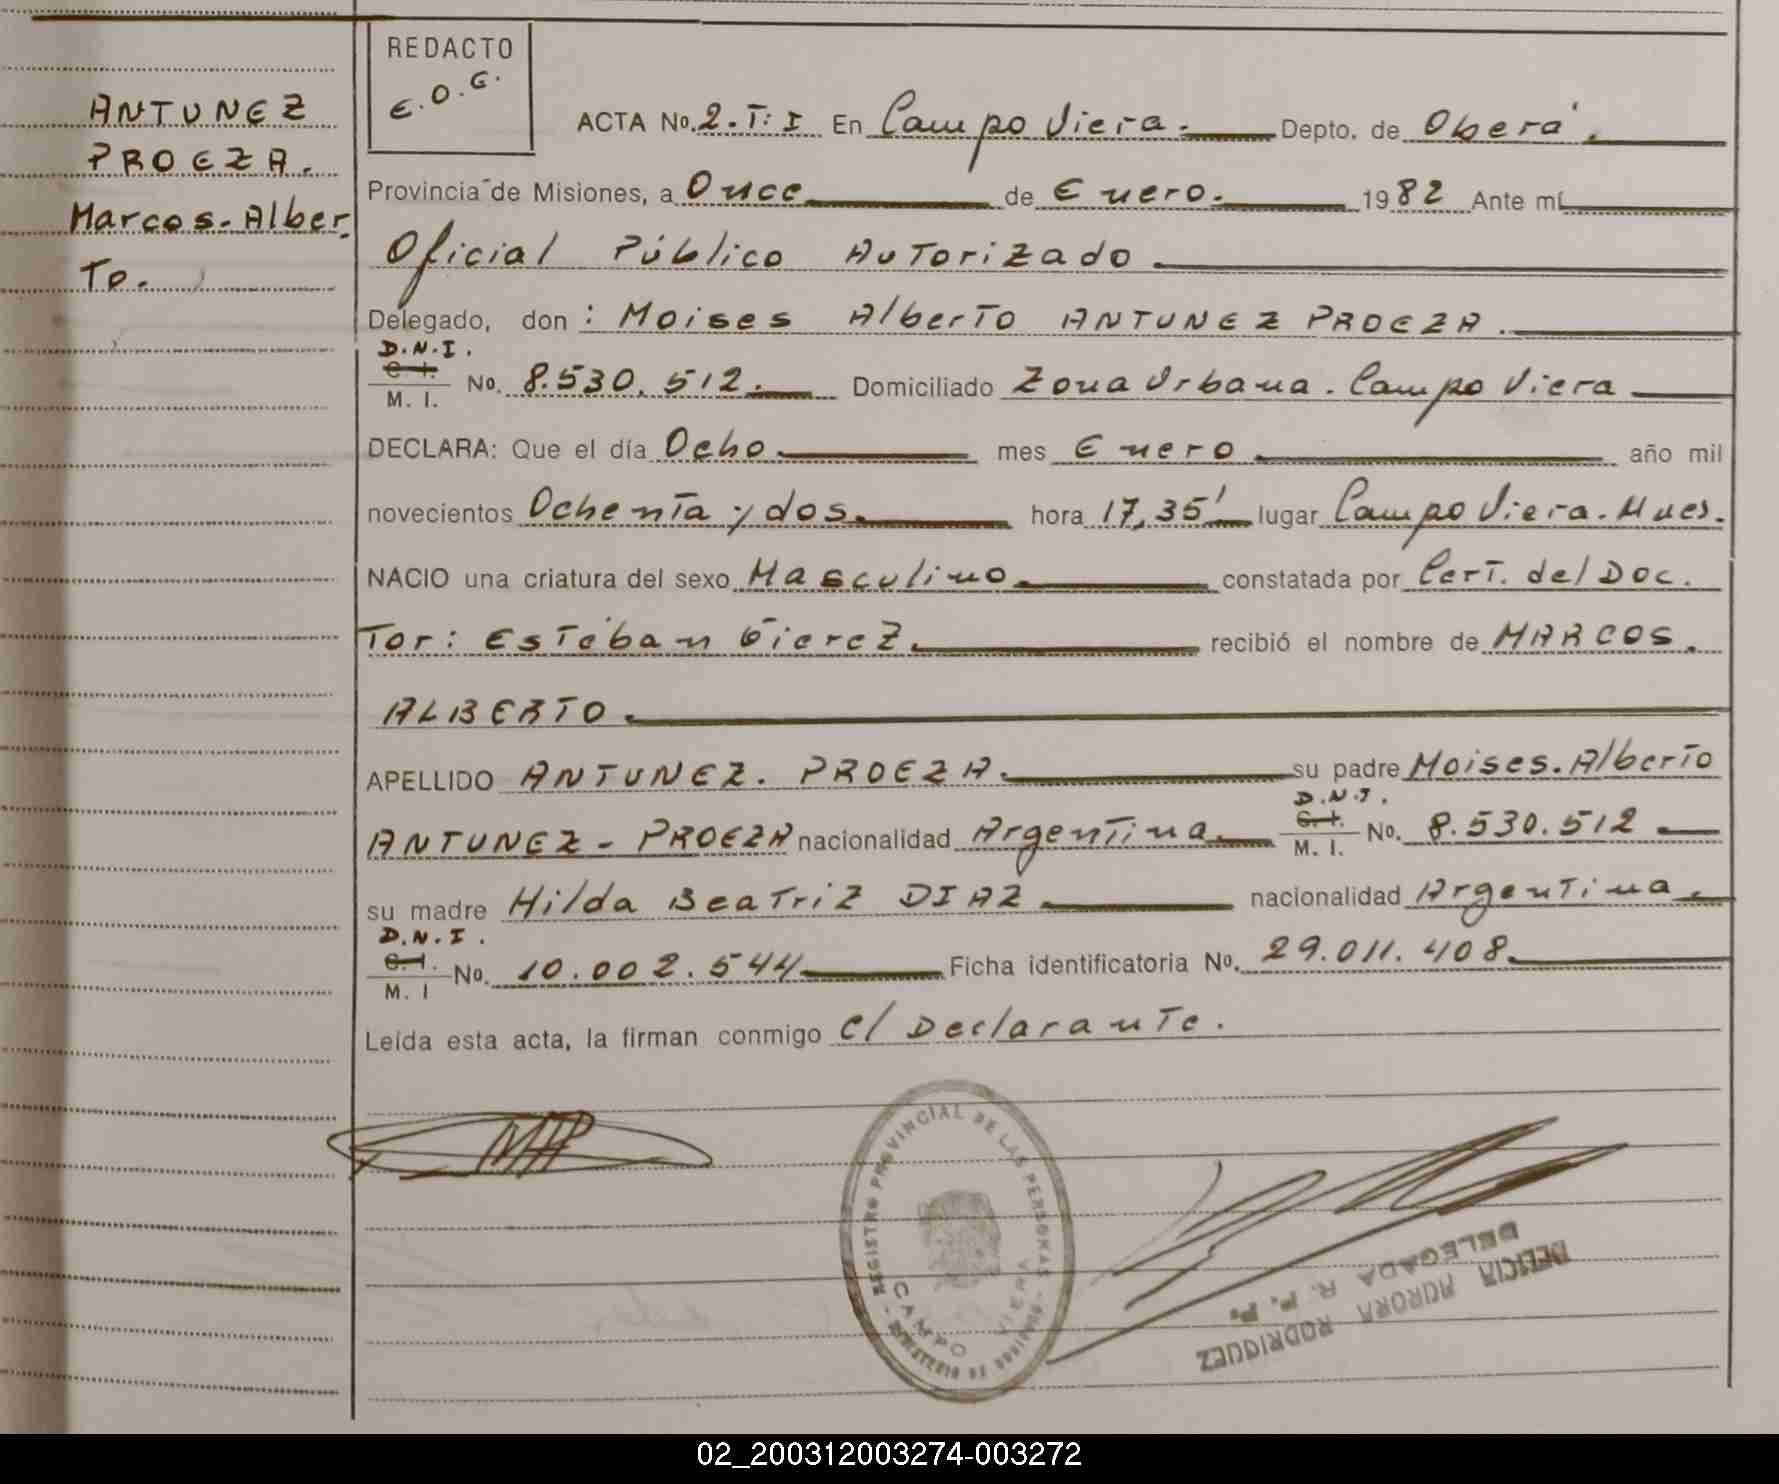 ANTUNEZ
PROEZA.
Marcos-Alber
To.
REDACTO
E.O.G.
ACTA No. 2-T: I En Campo Viera. Depto. de Oberá.
Provincia de Misiones, a Once de Enero. 1982 Ante mí
Oficial Público Autorizado
Delegado, don: Moises Alberto ANTUNEZ PROEZA.
D.N.I.
C. I.
M. I. No. 8.530.512. Domiciliado Zona Urbana. Campo Viera
DECLARA: Que el día Ocho mes Enero año mil
novecientos Ochenta y dos. hora 17,35' lugar Campo Viera. Mnes.
NACIO una criatura del sexo Masculino. constatada por Cert. del Doc.
Tor: Estéban Gierez. recibió el nombre de MARCOS.
ALBERTO.
APELLIDO ANTUNEZ. PROEZA. su padre Moises. Alberto
D.N.I.
ANTUNEZ - PROEZA nacionalidad Argentina. C. I. M. I. No. 8.530.512
su madre Hilda Beatriz DIAZ nacionalidad Argentina.
D.N.I.
C. I.
M. I No. 10.002.544 Ficha identificatoria No. 29.011.408
Leída esta acta, la firman conmigo el Declarante.
REGISTRO PROVINCIAL DE LAS PERSONAS - MINISTERIO DE GOBIERNO -
CAMPO VIERA
DELICIA AURORA RODRIGUEZ
DELEGADA R. P. P.
02_200312003274-003272